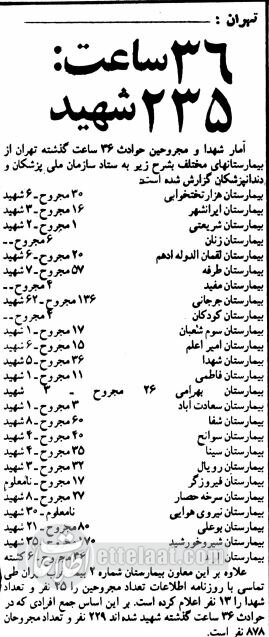 تهران :
۳۶ ساعت:
۲۳۵ شهید
آمار شهدا و مجروحین حوادث ۳۶ ساعت گذشته تهران از
بیمارستانهای مختلف بشرح زیر به ستاد سازمان ملی پزشکان و
دندانپزشکان گزارش شده است:
بیمارستان هزارتختخوابی ۳۰ مجروح ـ ۶ شهید
بیمارستان ایرانشهر ۱۶ مجروح ـ ۳ شهید
بیمارستان شریعتی ۱ مجروح ـ ۲ شهید
بیمارستان زنان ۶ مجروح ــ
بیمارستان لقمان الدوله ادهم ۲۰ مجروح ـ ۶ شهید
بیمارستان طرفه ۵۷ مجروح ـ ۷ شهید
بیمارستان مفید ۴ مجروح ــ
بیمارستان جرجانی ۱۳۶ مجروح ـ ۶۲ شهید
بیمارستان کودکان ۴ مجروح ــ
بیمارستان سوم شعبان ۱۷ مجروح ـ ۱ شهید
بیمارستان امیر اعلم ۱۵ مجروح ـ ۶ شهید
بیمارستان شهدا ۳۶ مجروح ـ ۵ شهید
بیمارستان فاطمی ۱۱ مجروح ـ ۱ شهید
بیمارستان بهرامی ۲۶ مجروح ـ ۳ شهید
بیمارستان سعادت آباد ۳ مجروح ـ ۱ شهید
بیمارستان شفا ۶۰ مجروح ـ ۸ شهید
بیمارستان سوانح ۴۰ مجروح ـ ۴ شهید
بیمارستان سینا ۳۵ مجروح ـ ۴ شهید
بیمارستان رویال ۳۲ مجروح ـ ۳ شهید
بیمارستان فیروزگر ۱۷ مجروح ـ نامعلوم
بیمارستان سرخه حصار ۲۷ مجروح ـ ۸ شهید
بیمارستان نیروی هوایی نامعلوم ـ ۳۰ شهید
بیمارستان بوعلی ۸۰ مجروح ـ ۲۱ شهید
بیمارستان شیروخورشید مجروح ـ ۳۵ شهید
بیمارستان مجروح ـ ۶ کشته
علاوه بر این معاون بیمارستان شماره ۲ طی
تماسی با روزنامه اطلاعات تعداد مجروحین را ۲۵ نفر و تعداد
شهدا را ۱۳ نفر اعلام کرده است. بر این اساس جمع افرادی که در
حوادث ۳۶ ساعت گذشته شهید شده‌اند ۲۲۹ نفر و تعداد مجروحان
۸۷۸ نفر است.
ettelaat.com